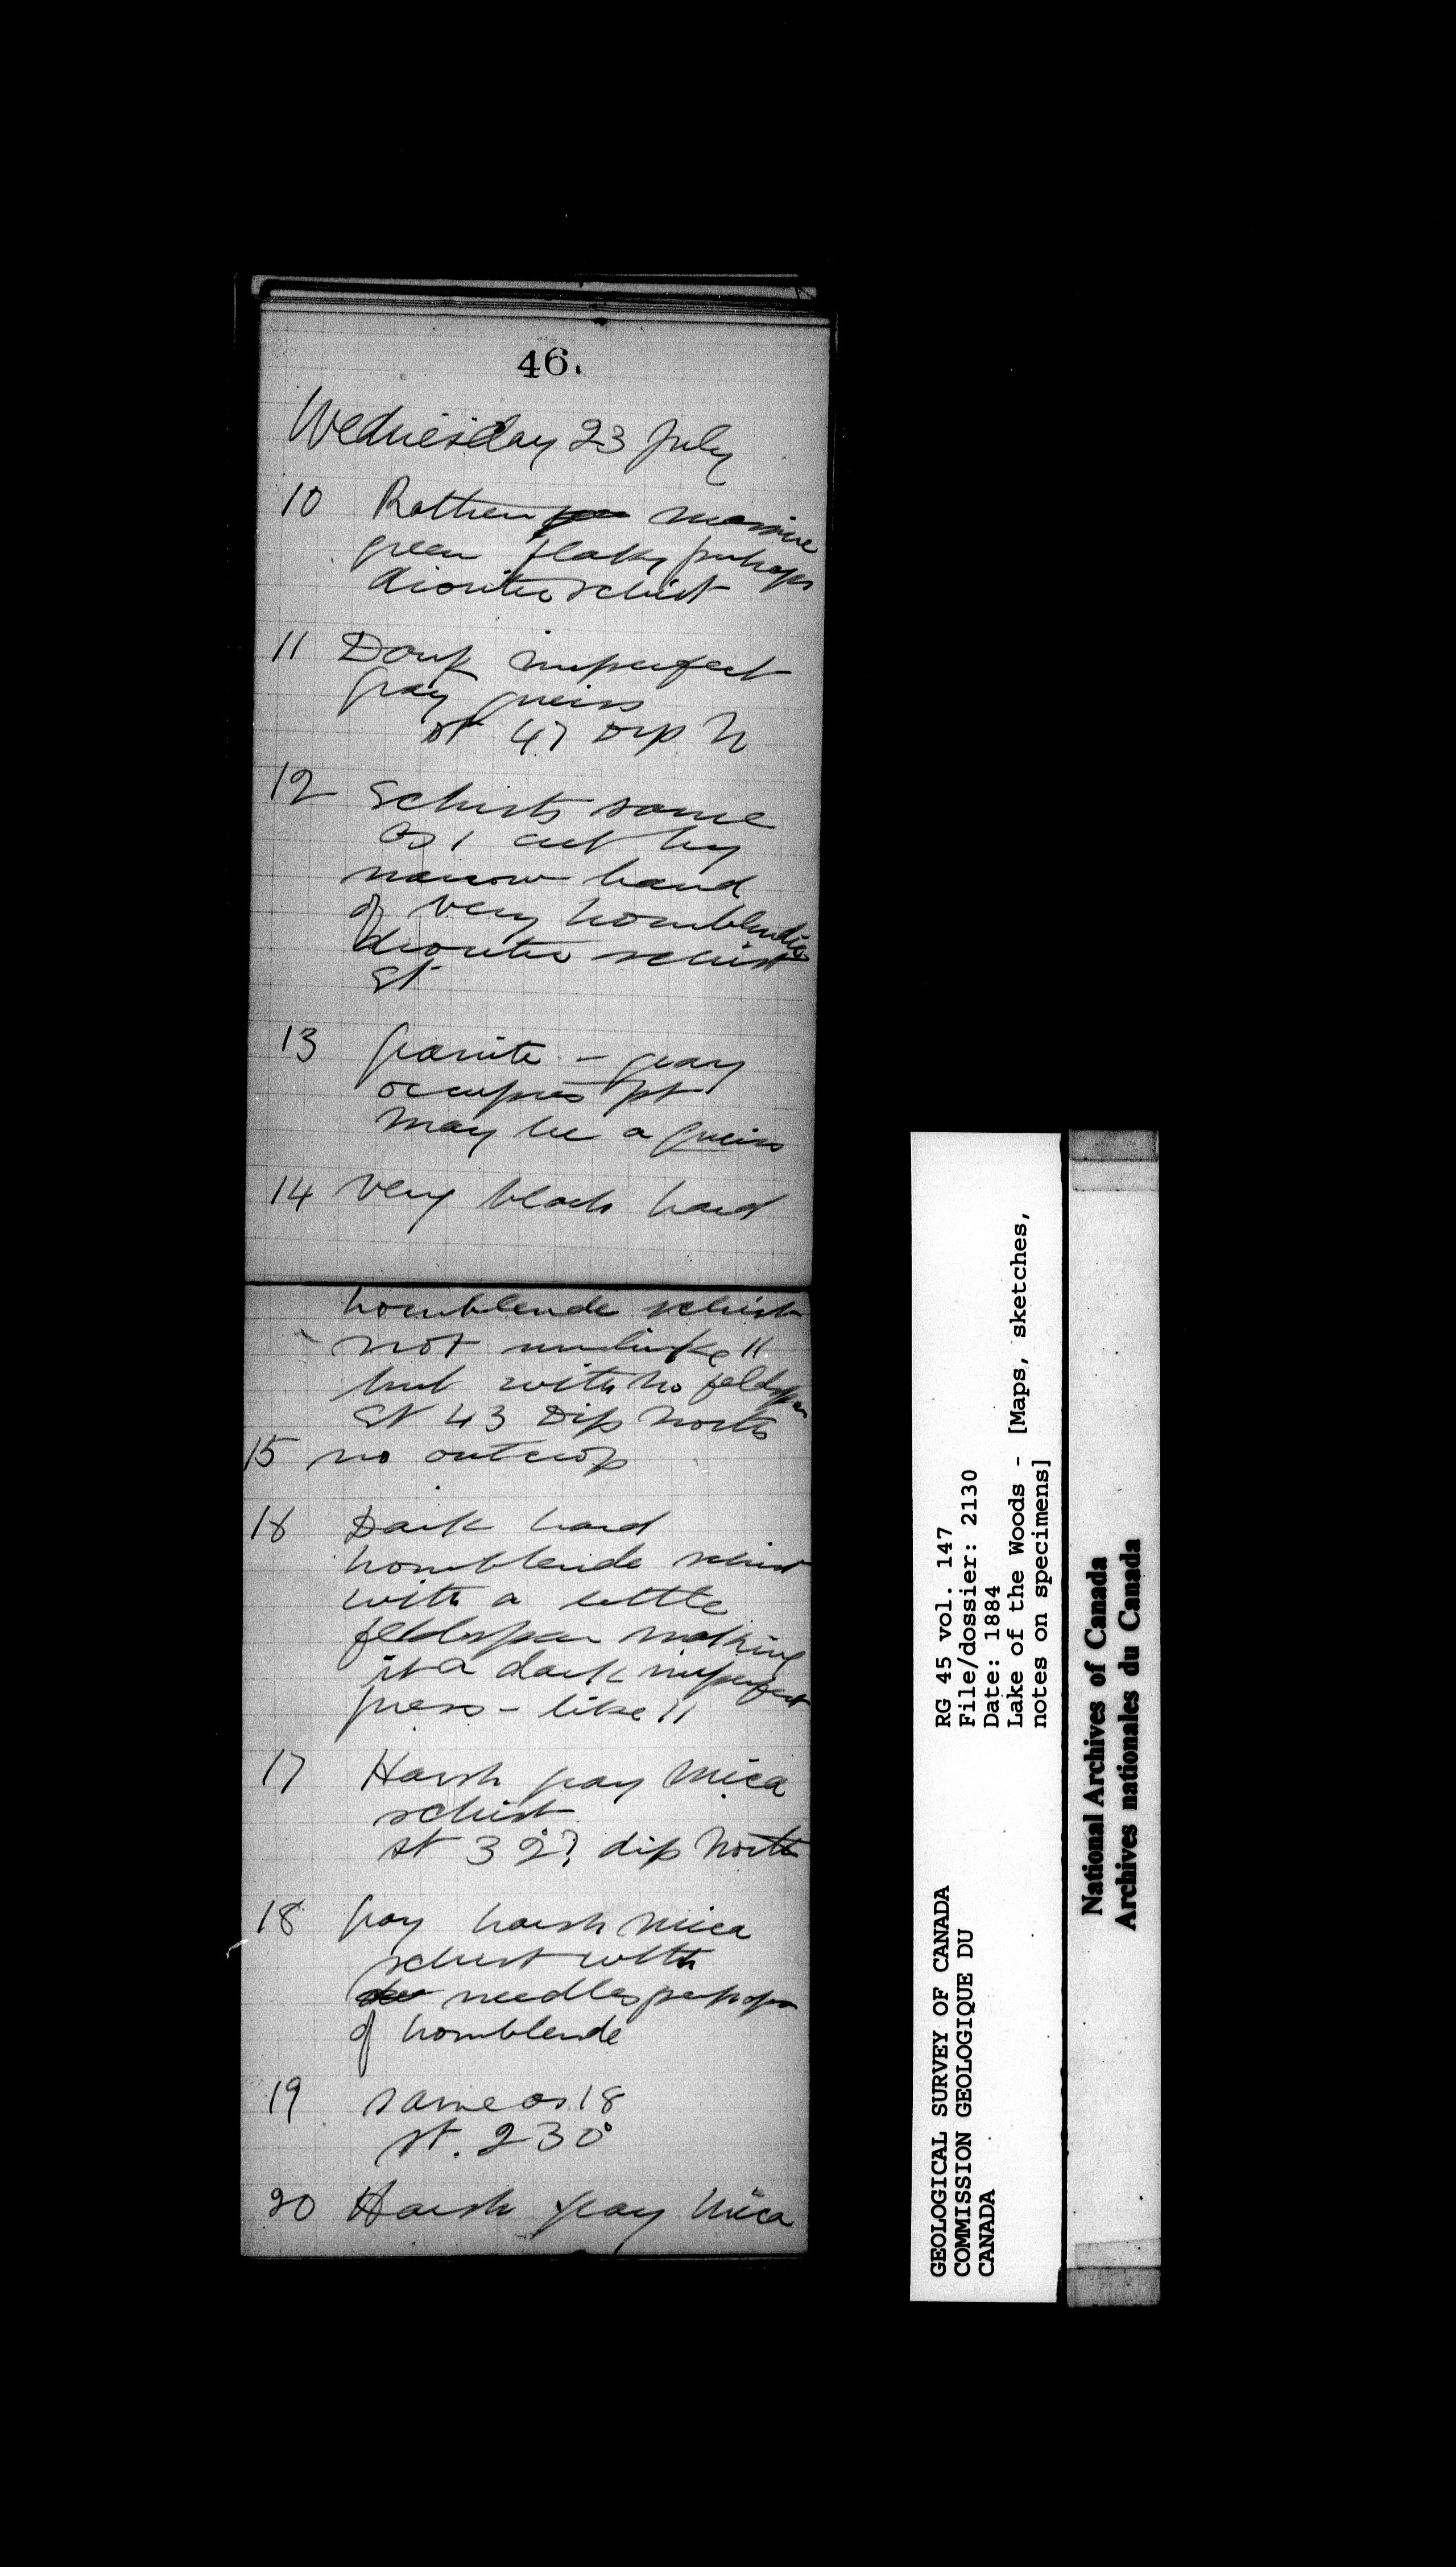 46.
Wednesday 23 July
10 Rather massive
green flaky perhaps
dioritic schist
11 Dark imperfect
gray gneiss
St 47 Dip N
12 Schists same
as 1 cut by
narrow band
of very hornblendic
dioritic schist
St
13 Granite - gray
occupies pt
may be a gneiss
14 Very black hard
hornblende schist
not unlike 11
but with no feldspar
St 43 Dip North
15 no outcrop
16 Dark hard
hornblende schist
with a little
feldspar making
it a dark imperfect
gneiss - like 11
17 Harsh gray mica
schist
st 32°? dip North
18 Gray harsh mica
schist with
needles perhaps
of hornblende
19 same as 18
st. 230°
20 Harsh gray mica
GEOLOGICAL SURVEY OF CANADA
COMMISSION GEOLOGIQUE DU
CANADA
RG 45 vol. 147
File/dossier: 2130
Date: 1884
Lake of the Woods - [Maps, sketches,
notes on specimens]
National Archives of Canada
Archives nationales du Canada